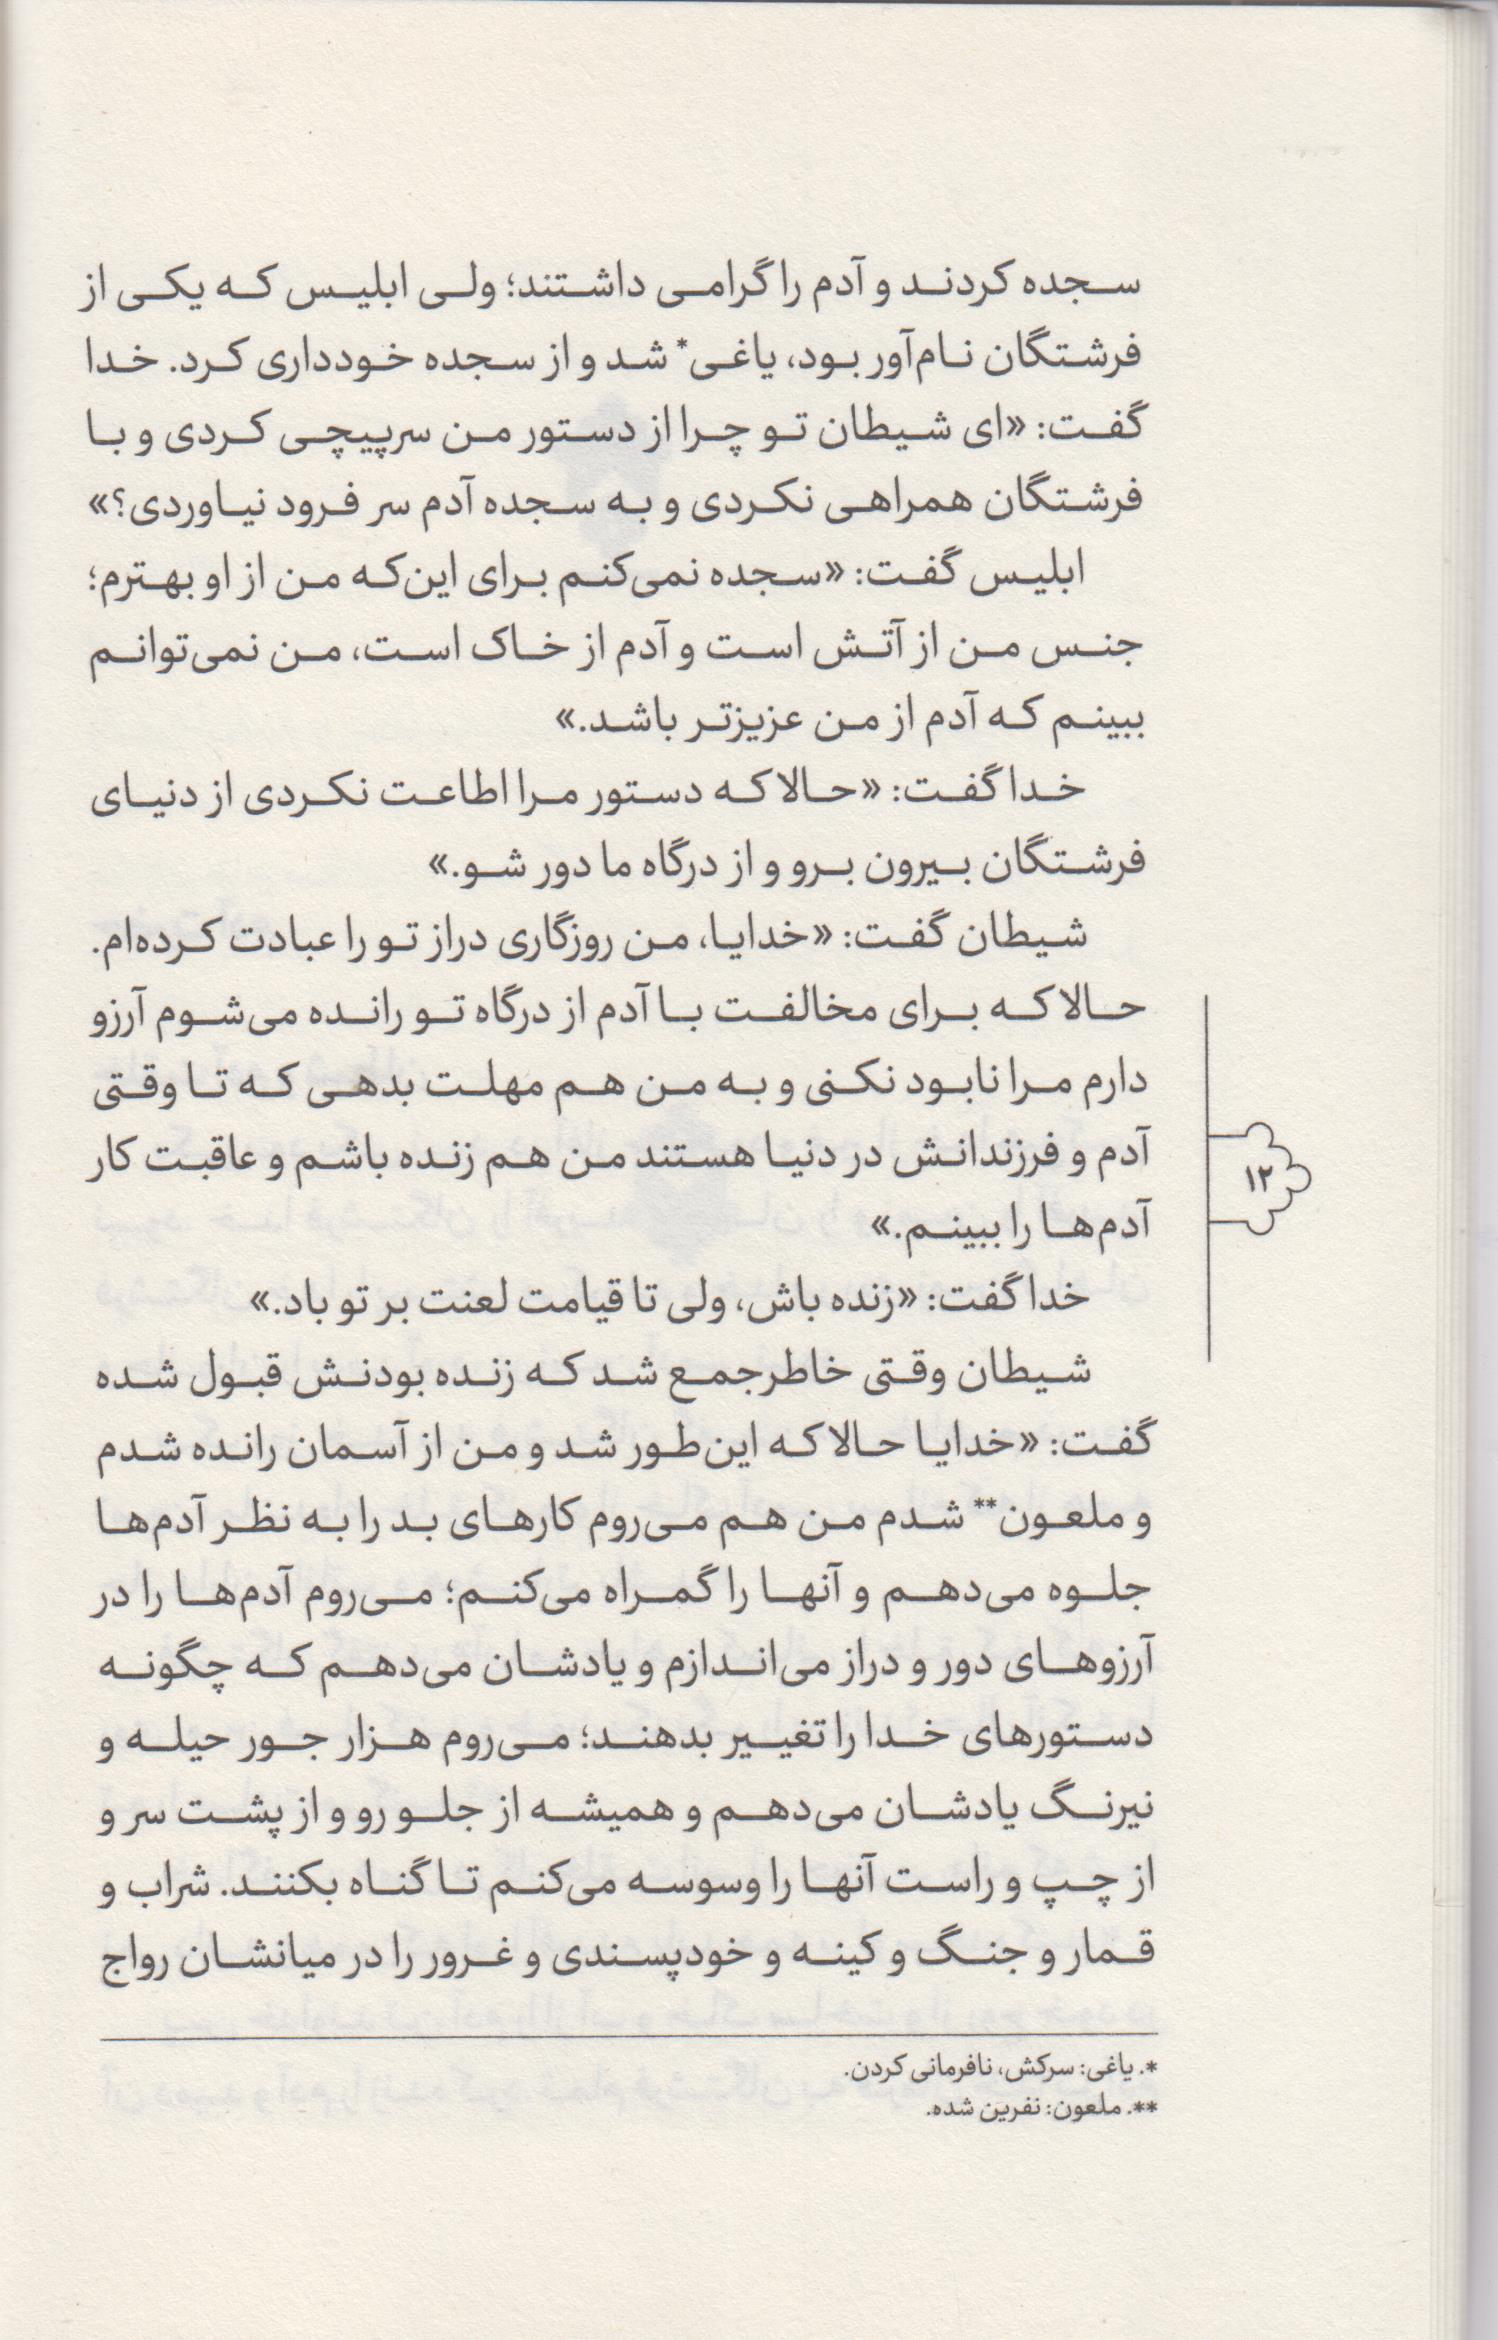 سجده کردند و آدم را گرامی داشتند؛ ولی ابلیس که یکی از
فرشتگان نام‌آور بود، یاغی* شد و از سجده خودداری کرد. خدا
گفت: «ای شیطان تو چرا از دستور من سرپیچی کردی و با
فرشتگان همراهی نکردی و به سجده آدم سر فرود نیاوردی؟»
ابلیس گفت: «سجده نمی‌کنم برای این‌که من از او بهترم؛
جنس من از آتش است و آدم از خاک است، من نمی‌توانم
ببینم که آدم از من عزیزتر باشد.»
خدا گفت: «حالا که دستور مرا اطاعت نکردی از دنیای
فرشتگان بیرون برو و از درگاه ما دور شو.»
شیطان گفت: «خدایا، من روزگاری دراز تو را عبادت کرده‌ام.
حالا که برای مخالفت با آدم از درگاه تو رانده می‌شوم آرزو
دارم مرا نابود نکنی و به من هم مهلت بدهی که تا وقتی
آدم و فرزندانش در دنیا هستند من هم زنده باشم و عاقبت کار
آدم‌ها را ببینم.»
خدا گفت: «زنده باش، ولی تا قیامت لعنت بر تو باد.»
شیطان وقتی خاطرجمع شد که زنده بودنش قبول شده
گفت: «خدایا حالا که این‌طور شد و من از آسمان رانده شدم
و ملعون** شدم من هم می‌روم کارهای بد را به نظر آدم‌ها
جلوه می‌دهم و آنها را گمراه می‌کنم؛ می‌روم آدم‌ها را در
آرزوهای دور و دراز می‌اندازم و یادشان می‌دهم که چگونه
دستورهای خدا را تغییر بدهند؛ می‌روم هزار جور حیله و
نیرنگ یادشان می‌دهم و همیشه از جلو رو و از پشت سر و
از چپ و راست آنها را وسوسه می‌کنم تا گناه بکنند. شراب و
قمار و جنگ و کینه و خودپسندی و غرور را در میانشان رواج
*. یاغی: سرکش، نافرمانی کردن.
**. ملعون: نفرین شده.
۱۲